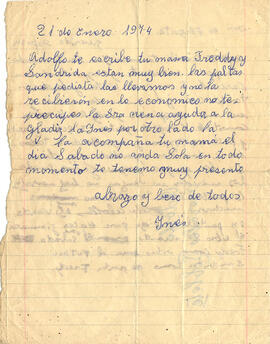 21 de Enero 1974
Adolfo te escribe tu mama Freddy y
Sandrida estan muy bien. las paltas
que pediata las llevamos y no la
recibieron en lo economico no te
precupes la Sra nena ayuda a la
Gladiz la Ines por otro lado la
V. la acompaña tu mama el
dia Sabado no anda Sola en todo
momento te tenemo muy presente
abrazo y beso de todos
Ines.